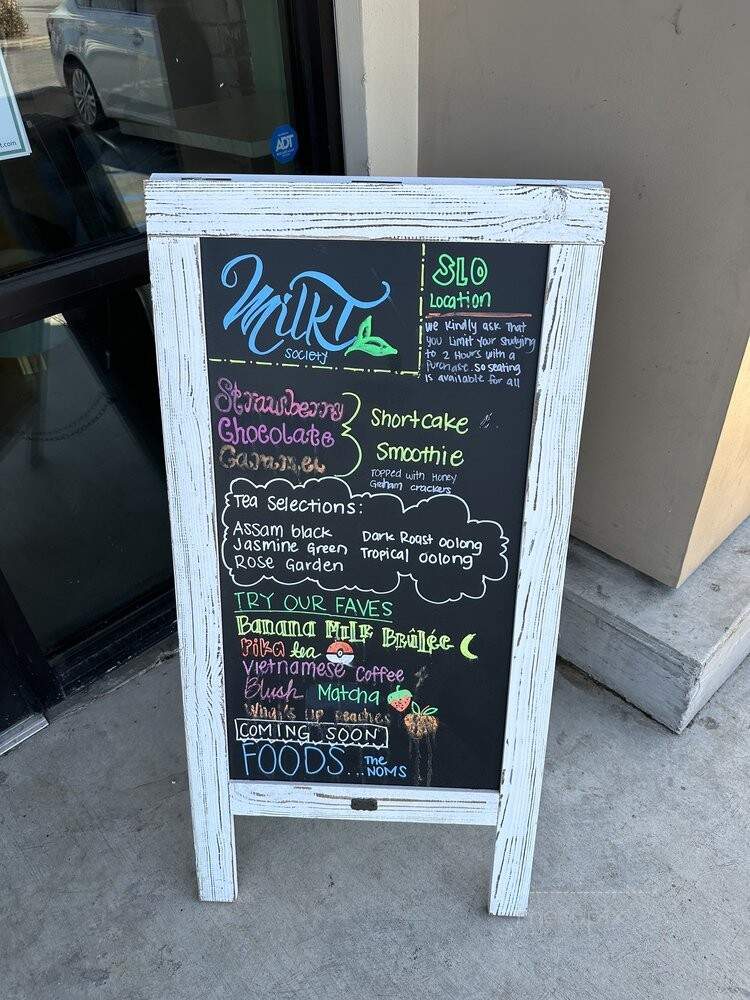 MilkT
society
SLO
Location
We Kindly ask That
you Limit Your Studying
to 2 Hours with a
Purchase. So seating
is available for all
Strawberry
Chocolate
Caramel
Shortcake
Smoothie
TOPPED with Honey
Graham crackers
Tea Selections:
Assam black
Jasmine Green
Rose Garden
Dark Roast oolong
Tropical oolong
TRY OUR FAVES
Banana Milk Brûlée
Pika tea
Vietnamese Coffee
Blush Matcha
What's Up Peaches
COMING SOON
FOODS... The
NOMS
ADT